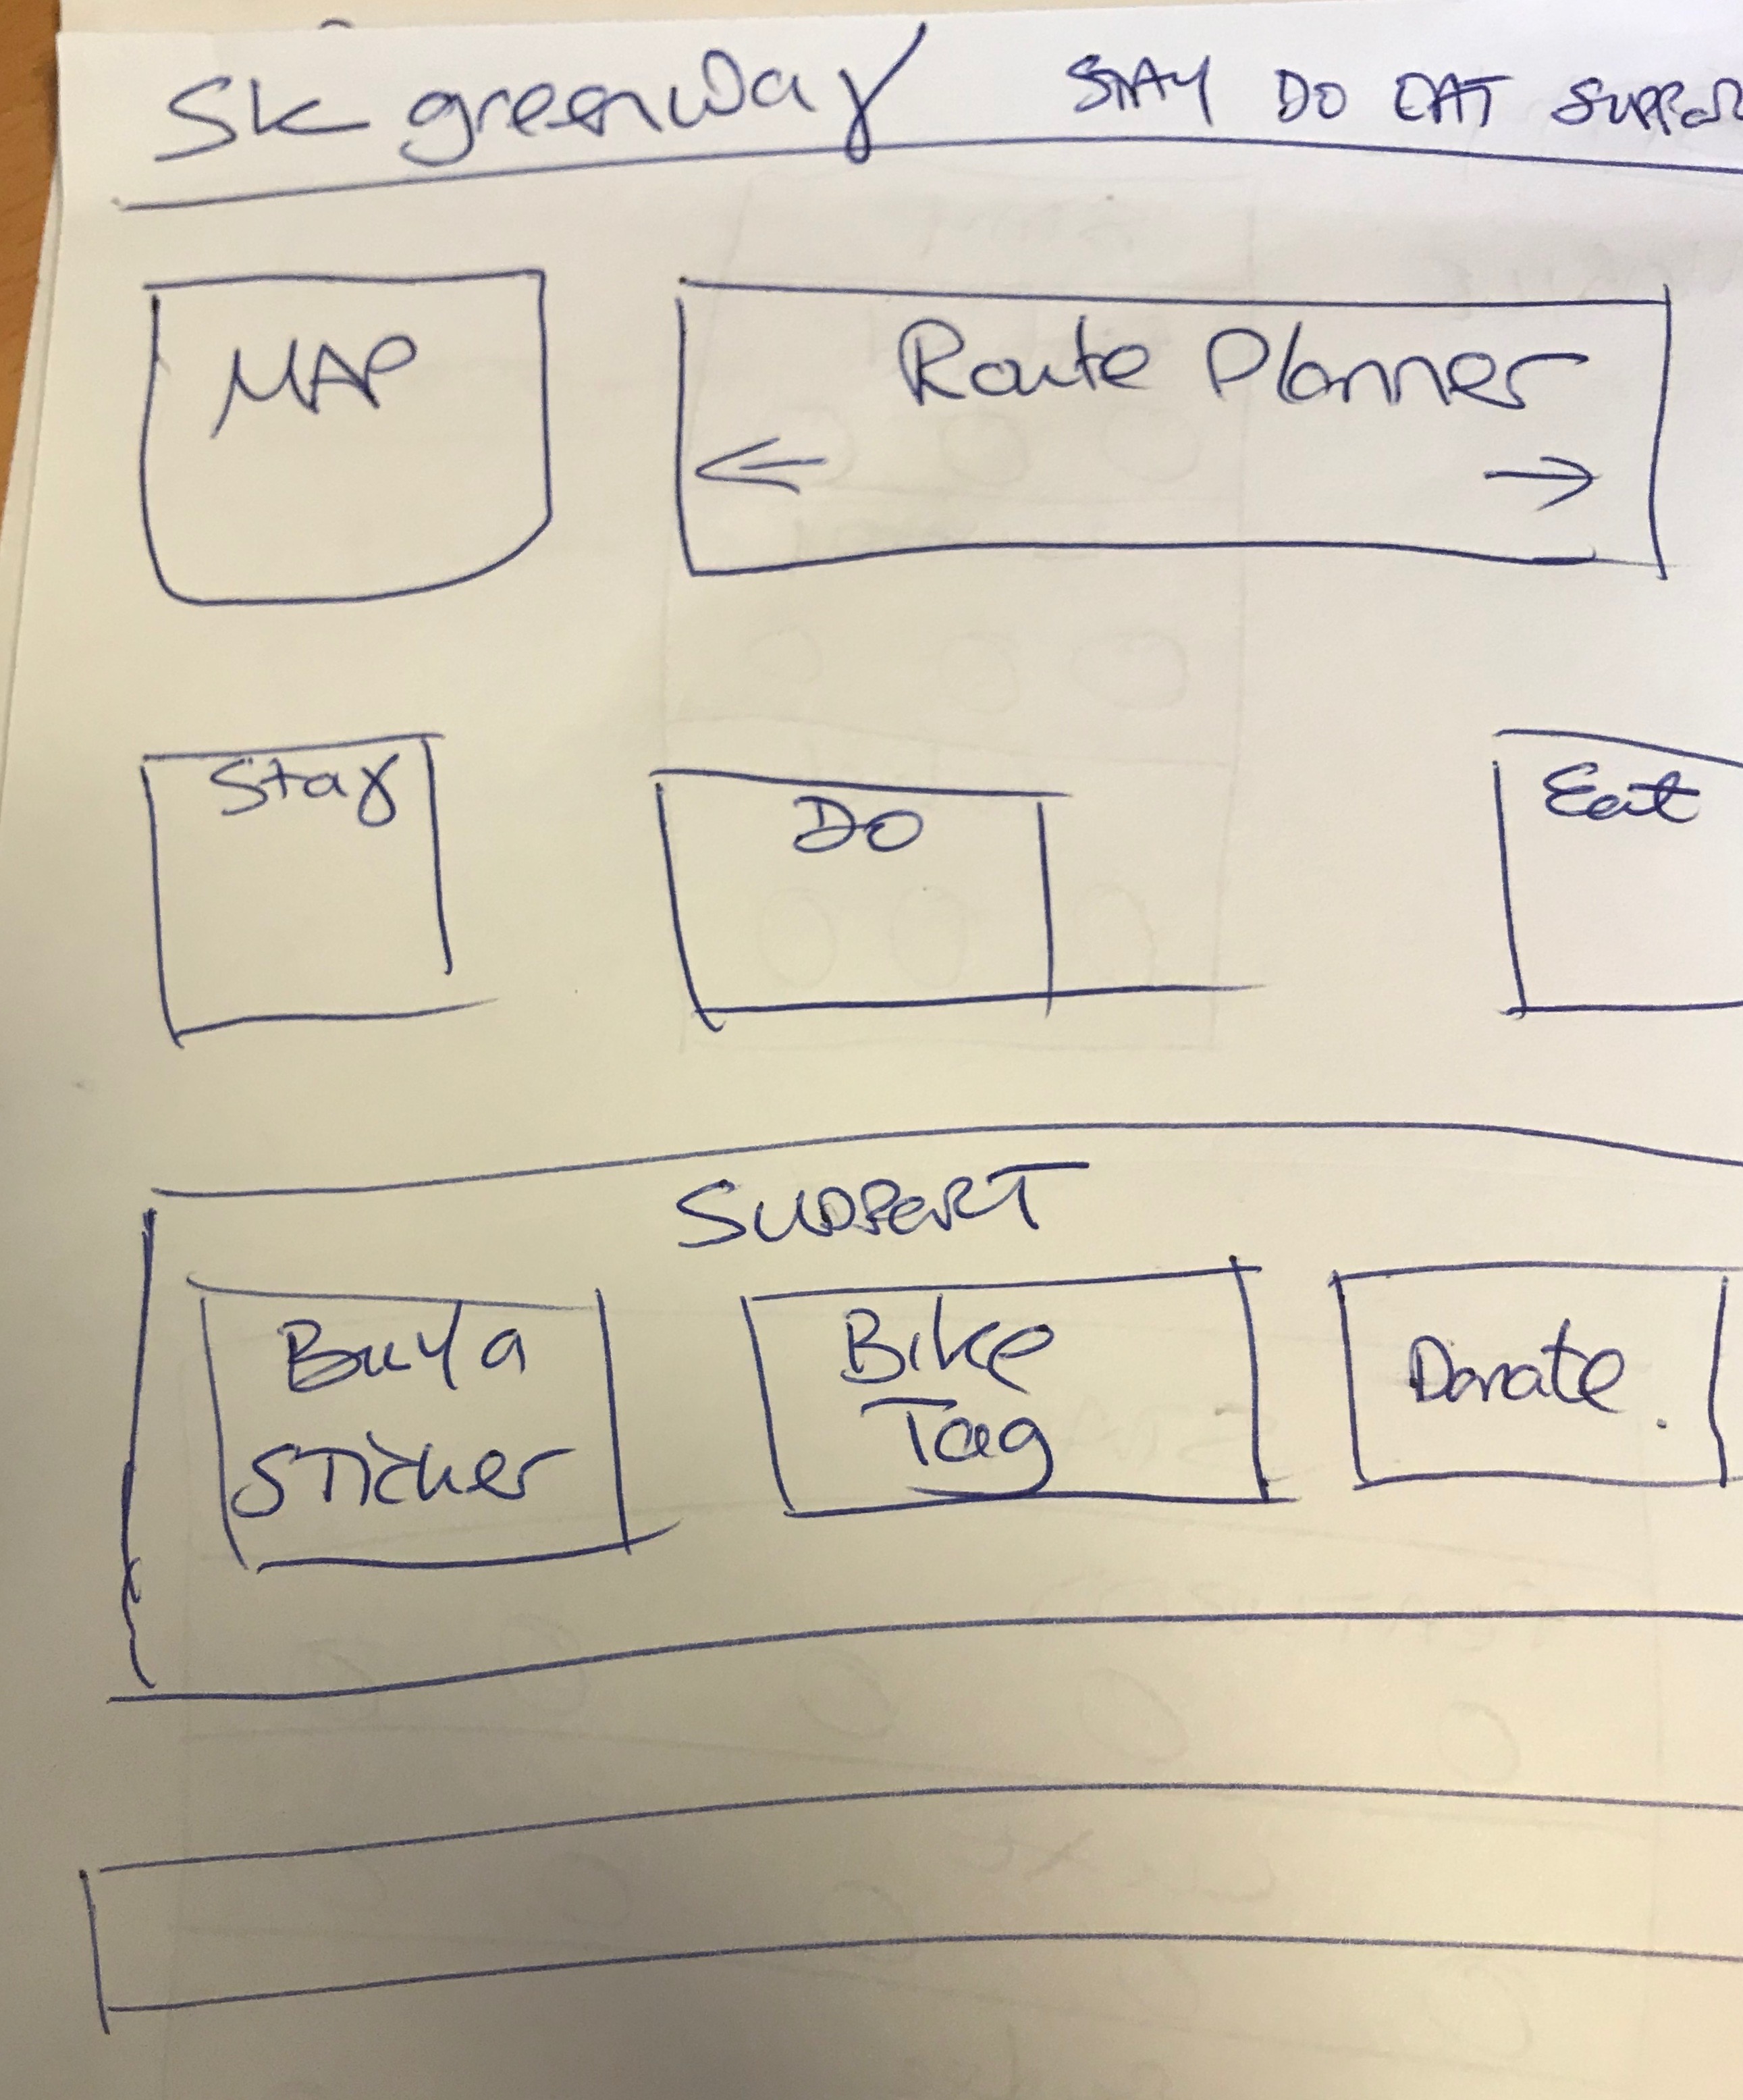 Sk greenway STAY DO EAT SUPPOR
MAP
Route Planner
Stay
Do
Eat
SUPPORT
Buy a
Sticker
Bike
Tag
Donate.